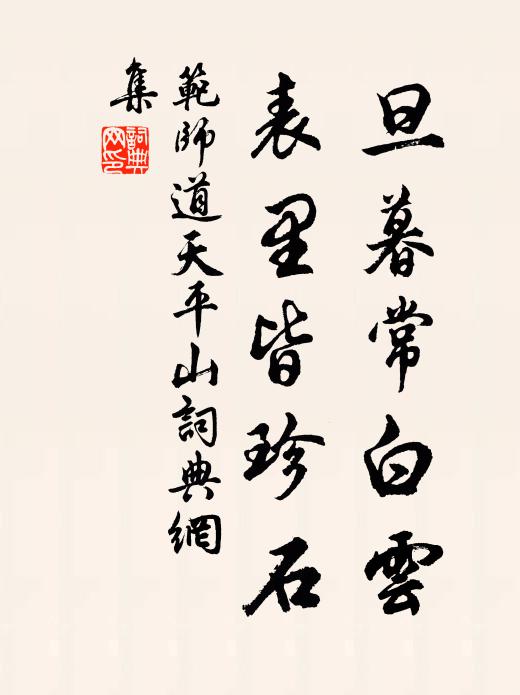 旦暮常白雲
表里皆珍石
範師道天平山詞典網
集
詞典
网印